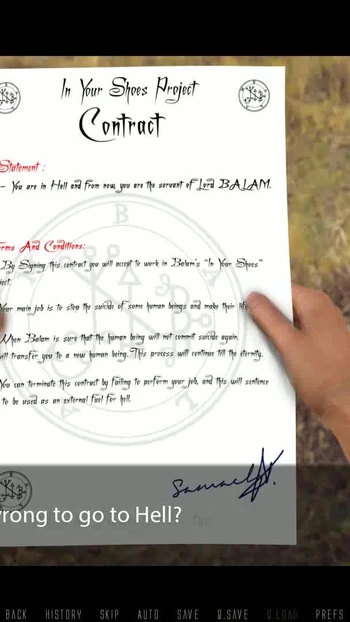 In Your Shoes Project
Contract
Statement :
- You are in Hell and from now, you are the servant of Lord BALAM.
rms And Conditions:
By Signing this contract you will accept to work in Balam's "In Your Shoes"
ject.
Your main job is to stop the suicide of some human beings and make their life
When Balam is sure that the human being will not commit suicide again,
ill transfer you to a new human being. This process will continue till the eternity.
You can terminate this contract by failing to perform your job, and this will sentence
to be used as an external fuel for hell.
wrong to go to Hell?
BACK HISTORY SKIP AUTO SAVE Q.SAVE Q.LOAD PREFS